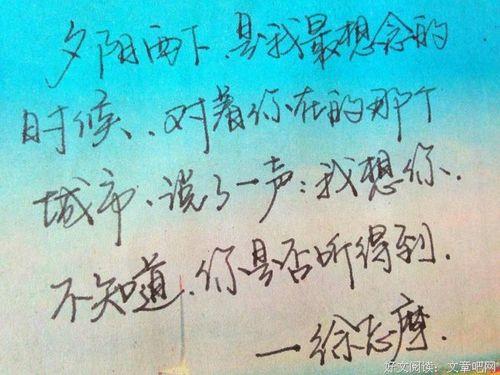 夕阳西下,是我最想念的
时候、对着你在的那个
城市、说了一声:我想你.
不知道,你是否听得到.
一徐志摩.
好文阅读:文章吧网